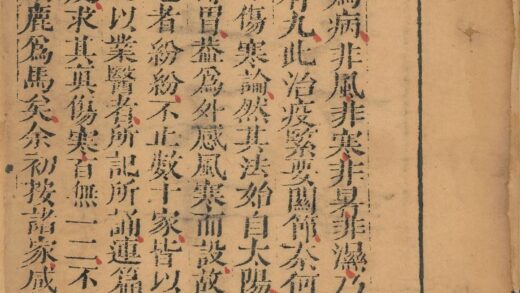 爲病非風非寒非暑非濕乃
有九此治疫緊要關節奈何
傷寒論然其法始自太陽
胃葢爲外感風寒而設故
者紛紛不止數十家皆以
以業醫者所記所誦連篇
求其眞傷寒百無一二不
鹿爲馬矣余初按諸家咸